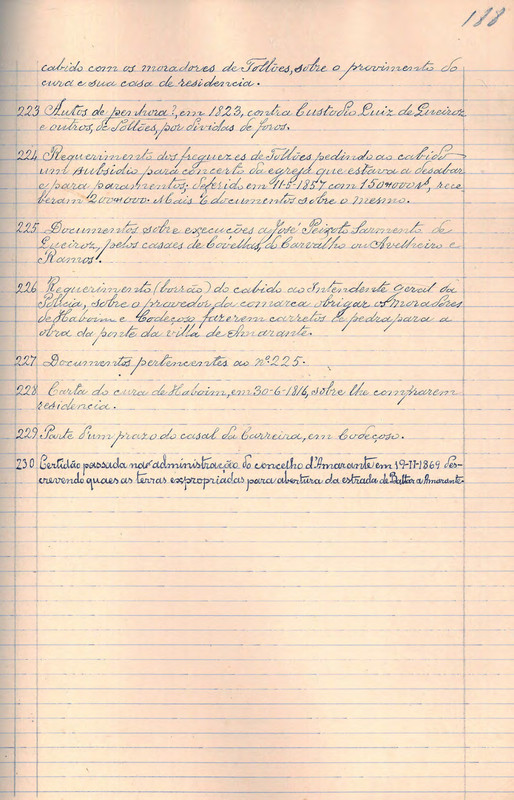 188
cabido com os moradores de Tollões, sobre o provimento do
cura e sua casa de residencia.
223 Autos de penhora?, em 1823, contra Custodio Luiz de Queiroz
e outros, de Tollões, por dividas de foros.
224 Requerimento dos freguezes de Tollões pedindo ao cabido
um subsidio para concerto da egreja que estava a desabar
e para paramentos; deferido em 11-5-1857 com 150#000 rs, rece
beram 200#000. Mais 6 documentos sobre o mesmo.
225 Documentos sobre execuções a José Peixoto Sarmento de
Queiroz, pelos casaes de Covêllas, do Carvalho ou e
Ramos.
226 Requerimento (borrão) do cabido ao Intendente geral da
Policia, sobre o provedor da comarca obrigar os moradores
de Haboim e Codeçoso fazerem carretos de pedra para a
obra da ponte da villa de Amarante.
227 Documentos pertencentes ao nº 225.
228 Carta do cura de Haboim, em 30-6-1816, sobre lhe comprarem
residencia.
229 Parte d'um prazo do casal da Carreira, em Codeçoso.
230 Certidão passada na administração do concelho d'Amarante em 19-11-1869 des-
crevendo quaes as terras expropriadas para abertura da estrada de Baltar a Amarante.